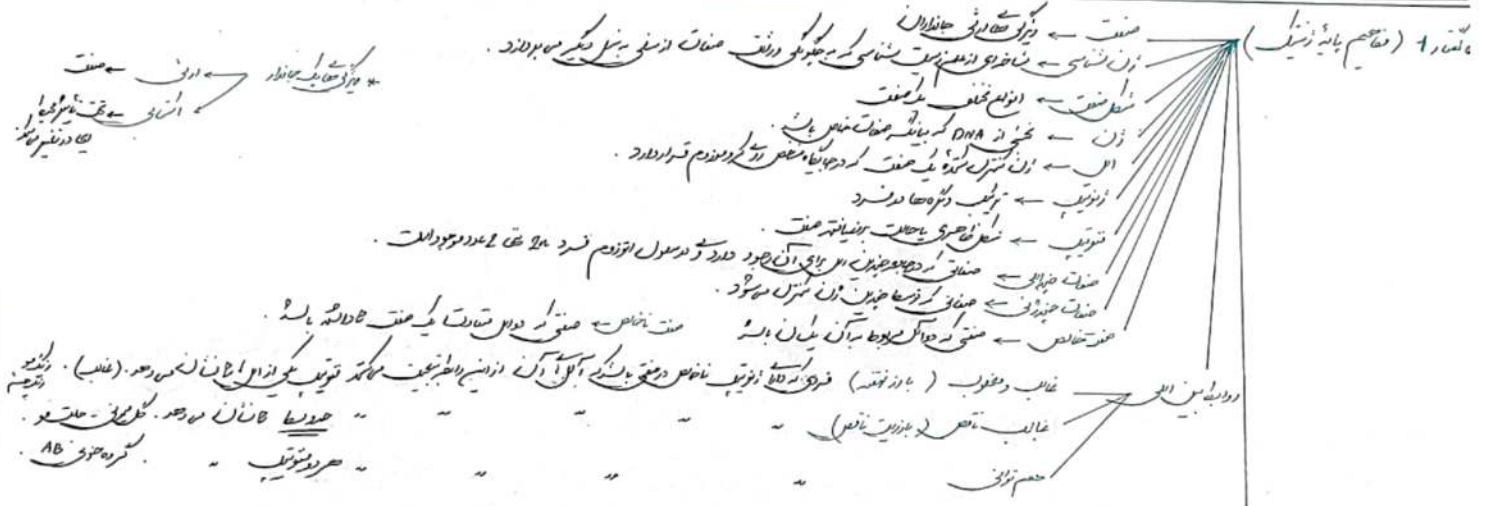 گفتار 1 (مفاهیم پایهٔ ژنتیک)
صفت ← ویژگی های ارثی جانداران
ژن شناسی ← شاخه ای از علم زیست شناسی که به چگونگی وراثت صفات از نسلی به نسل دیگر می پردازد.
شکل صفت ← انواع مختلف یک صفت
ژن ← بخشی از DNA که بیانگر صفات خاص باشد.
الل ← ژن کنترل کنندهٔ یک صفت که در جایگاه مشخص روی کروموزوم قرار دارد.
ژنوتیپ ← ترکیب دگره ها در فرد
فنوتیپ ← شکل ظاهری یا حالت بروز یافته صفت.
صفات چند اللی ← صفاتی که در جامعه چندین الل برای آن وجود دارد ولی در سلول اتوزوم فرد 2n حتی 2 عدد موجود است.
صفات چند ژنی ← صفاتی که توسط چندین ژن کنترل می شود.
صفت خالص ← صفتی که دو الل مربوط به آن یکسان باشد
صفت ناخالص ← صفتی که دو الل متفاوت یک صفت را داشته باشد.
* ویژگی های یک جاندار
ارثی ← صفت
اکتسابی ← تحت تأثیر محیط
روابط بین اللی
غالب و مغلوب (بارز نهفته) فردی که دارای ژنوتیپ ناخالص در صفتی باشد که الل های آن از این رابطه تبعیت می کنند فنوتیپ یکی از الل ها را نشان می دهد. (غالب). رنگ مو
غالب ناقص (بارزیت ناقص) 〃 〃 〃 〃 〃 حد وسط را نشان می دهد. گل میمونی - حالت مو.
هم توانی 〃 〃 〃 〃 〃 هر دو فنوتیپ 〃 . گروه خونی AB.